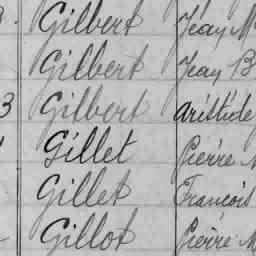 Gilbert Jean M
Gilbert Jean B
3 Gilbert Aristide
Gillet Pierre
Gillet François
Gillot Pierre M